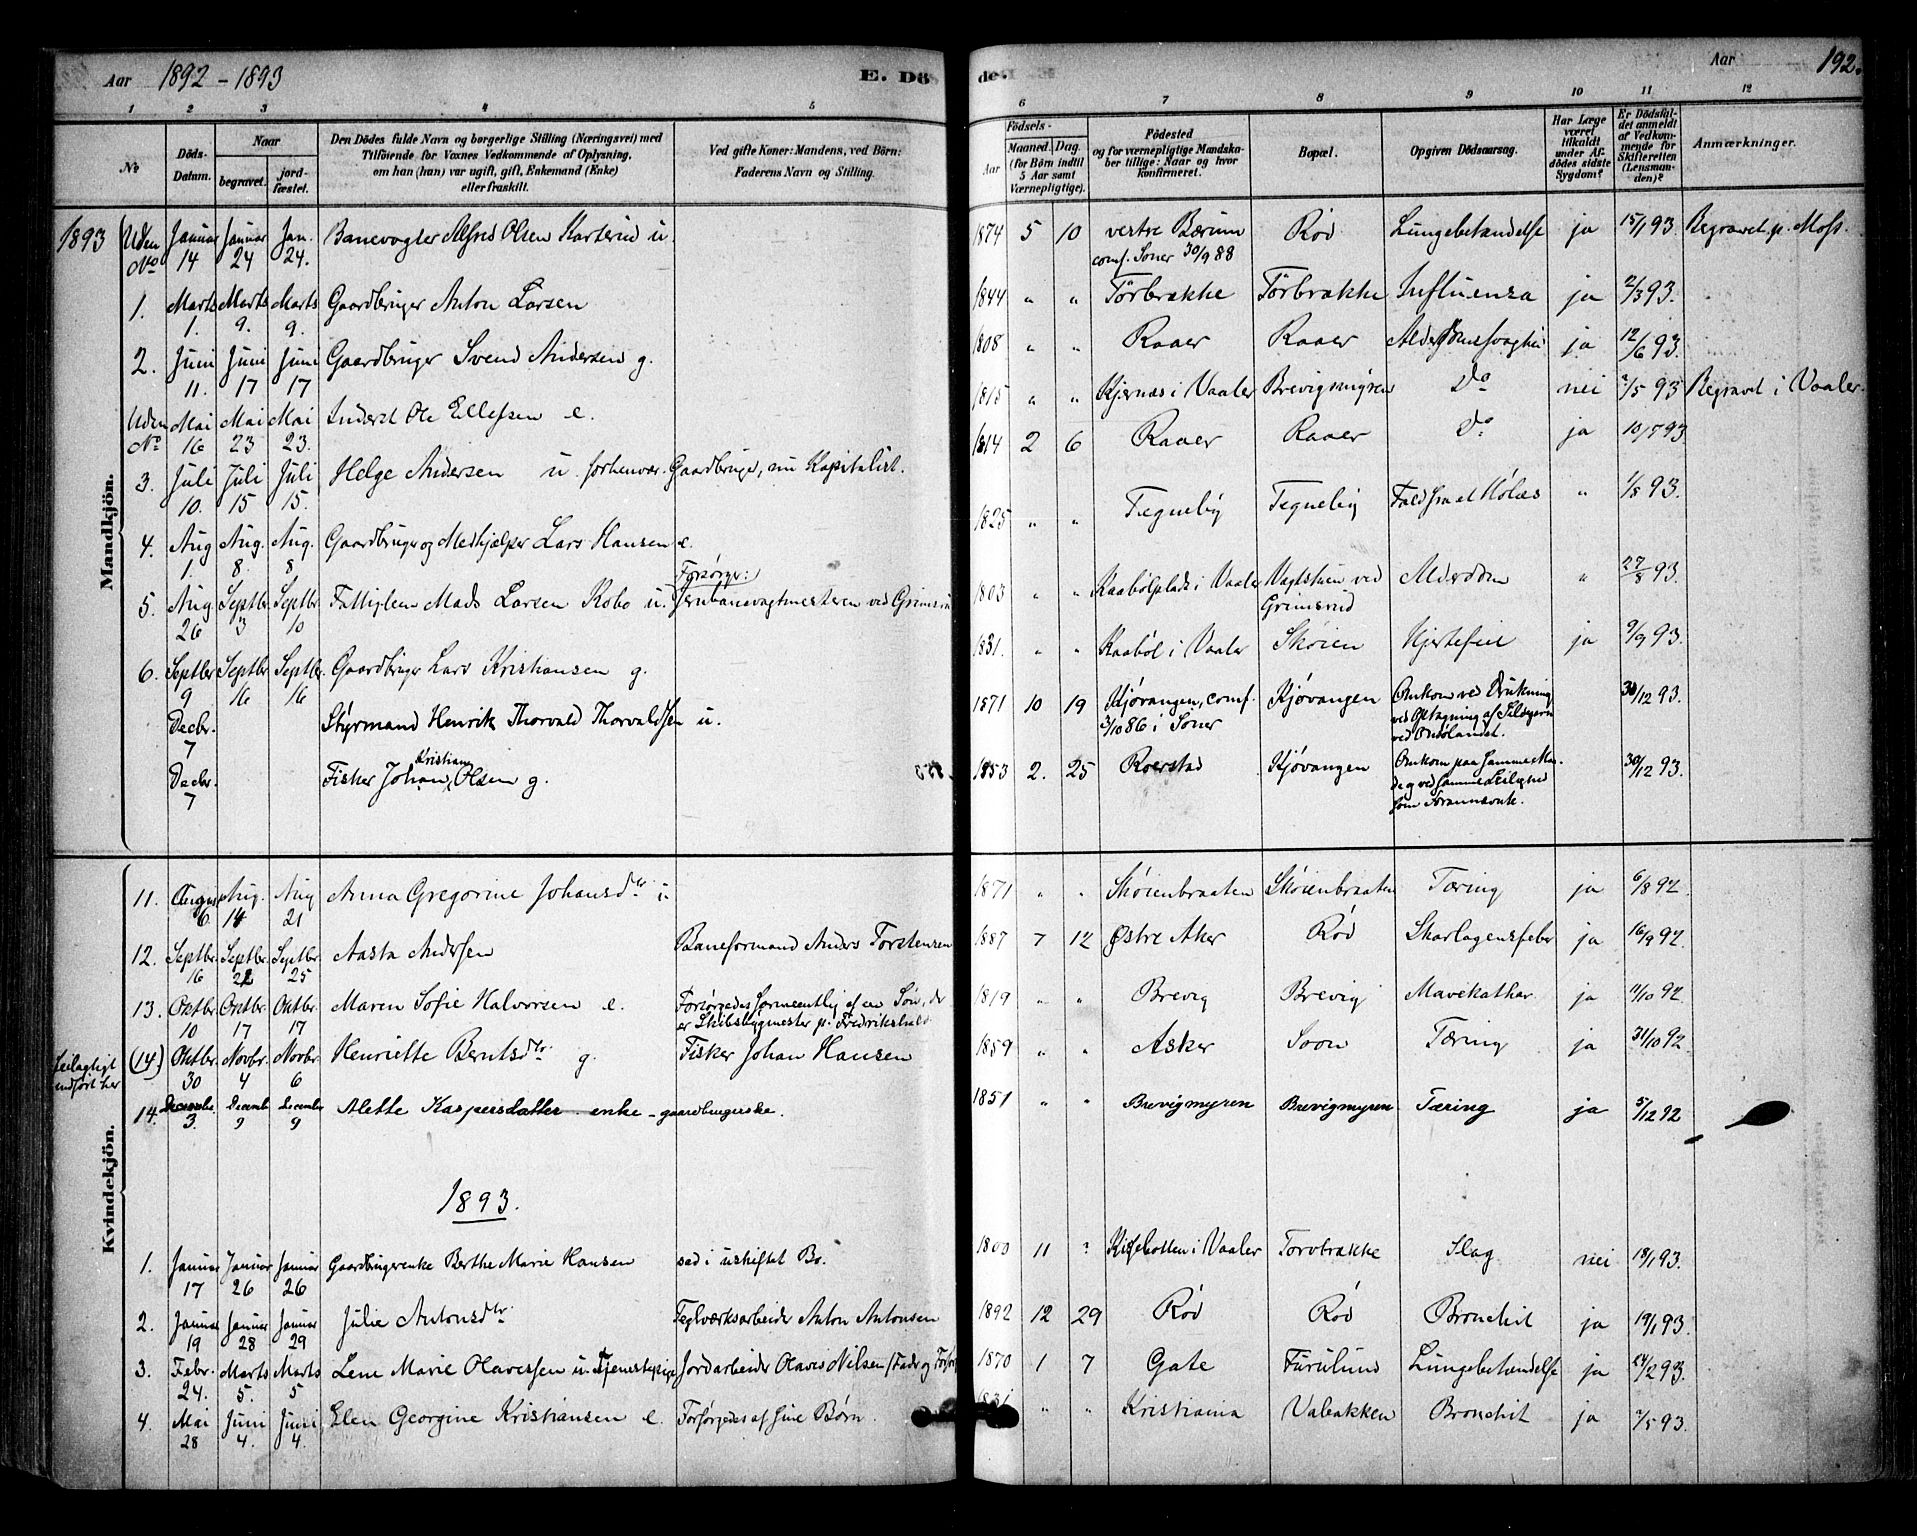 Aar 1892-1893 E. Dö
de. Aar 192.
1 2 3 4 5
6 7 8 9 10 11 12
No Döds-Datum. Naar begravet. jord-fæstet.
Den Dödes fulde Navn og borgerlige Stilling (Næringsvei) med
Tilföiende for Voxnes Vedkommende af Oplysning,
om han (hun) var ugift, gift, Enkemand (Enke)
eller fraskilt.
Ved gifte Koner: Mandens, ved Börn:
Faderens Navn og Stilling.
Födsels-
Aar Maaned. Dag.
(for Börn indtil
5 Aar samt
Værnepligtige).
Födested
og for værnepligtige Mandska-
ber tillige: Naar og hvor
konfirmeret.
Bopæl.
Opgiven Dödsaarsag.
Har Læge
været
tilkaldt
under Af-
dödes sidste
Sygdom?
Er Dödsfal-
det anmeldt
af Vedkom-
mende for
Skifteretten
(Lensman-
den)?
Anmærkninger.
Mandkjön.
1893 Uden No Januar 14 Januar 24 Jan. 24. Banevogter Alfred Olsen Karterud u. 1874 5 10 vestre Bærum Rød Lungebetændelse ja 15/1 93. Begravet p. Moss.
conf. Soner 30/9 88
1. Marts 1. Marts 9. Marts 9. Gaardbruger Anton Larsen 1844 " " Törbrække Törbrække Influenza ja 2/3 93.
2. Juni 11. Juni 17 Juni 17 Gaardbruger Svend Andersen g. 1808 " " Raaer Raaer ja 12/6 93.
Uden No Mai 16 Mai 23 Mai 23. Inderst Ole Ellefsen e. 1815 " " Kjernæs i Vaaler Brevigmyren Do nei /5 93 Begravet i Vaaler.
3. Juli 10. Juli 15 Juli 15. Helge Andersen u. forhenvær. Gaardbruger, nu Kapitalist. 1814 2 6 Raaer Raaer Do ja 10/7 93
4. Aug 1. Aug. 8. Aug. 8 Gaardbruger og Medhjælper Lars Hansen e. 1825 " " Tegneby Tegneby Fald fra et Hølæs " 1/8 93.
Forsørger:
5. Aug 26 Septbr. 3 Septbr. 10 Fattiglem Mads Larsen Robo u. Jernbanevagtmesteren ved Grimsrud 1803 " " Kaabölplads i Vaaler Vagtstuen ved Alderdom " 27/8 93.
Grimsrud
6. Septbr 9 Septbr. 16 Septbr. 16 Gaardbruger Lars Kristiansen g. 1831. " " Kaaböl i Vaaler Skøien Hjertefeil ja 9/9 93.
Decbr. 7 Styrmand Henrik Thorvald Thorvaldsen u. 1871 10 19 Kjøvangen, conf. Kjøvangen Omkom ved Drukning 30/12 93.
3/10 86 i Soner ved Optagning af Sildegarn
Decbr. 7 Fisker Johan Kristian Olsen g. 1853 2. 25 Roerstad Kjøvangen Omkom paa samme Maa- 30/12 93.
de og ved samme Leilighed
som Forannævnte.
Kvindekjön.
11. August 6. Aug. 14 Aug 21 Anna Gregorine Johansdtr u. 1871 " " Skøienbraaten Skøienbraaten Tæring ja 6/8 92.
12. Septbr. 16 Septbr. 22 Septbr. 25 Aasta Andersen Baneformand Anders Torstensen 1887 7 12 Østre Aker Rød Skarlagensfeber ja 16/9 92.
13. Oktbr. 10 Oktbr. 17 Oktbr. 17 Maren Sofie Halvorsen e. Forsørgedes formentlig af en Søn, der 1819 " " Brevig Brevig Mavekathar ja 11/10 92.
er Skibsbygmester p. Fredrikshald
Leilagtigt indført her (14) Oktbr. 30 Novbr. 4 Novbr. 6 Henriette Berntsdtr g. Fisker Johan Hansen 1859 " " Asker Soon Tæring ja 31/10 92.
14. December 3. December 9 December 9 Alette Kaspersdatter enke - gaardbrugerske. 1851 " " Brevigmyren Brevigmyren Tæring ja 5/12 92
1893.
1. Januar 17 Januar 26 Januar 26 Gaardbrugerenke Berthe Marie Hansen sad i uskiftet Bo. 1800 11 ? i Vaaler Torvbrække Slag nei 18/1 93.
2. Januar 19 Januar 28 Januar 29 Julie Antonsdtr Teglværksarbeider Anton Antonsen 1892 12 29 Rød Rød Bronchit ja 19/1 93.
3. Febr. 24. Marts 5. Marts 5 Lene Marie Olavesen u. Tjenestepige Jordarbeider Olavis Nilsen (Fader og Forsør 1870 1 7 Gate Furulund Lungebetændelse ja 24/2 93.
4. Mai 28 Juni 4. Juni 4. Elen Georgine Kristiansen e. Forsørgedes af sine Børn 1831 " " Kristiania Vabakken Bronchit ja /5 93.